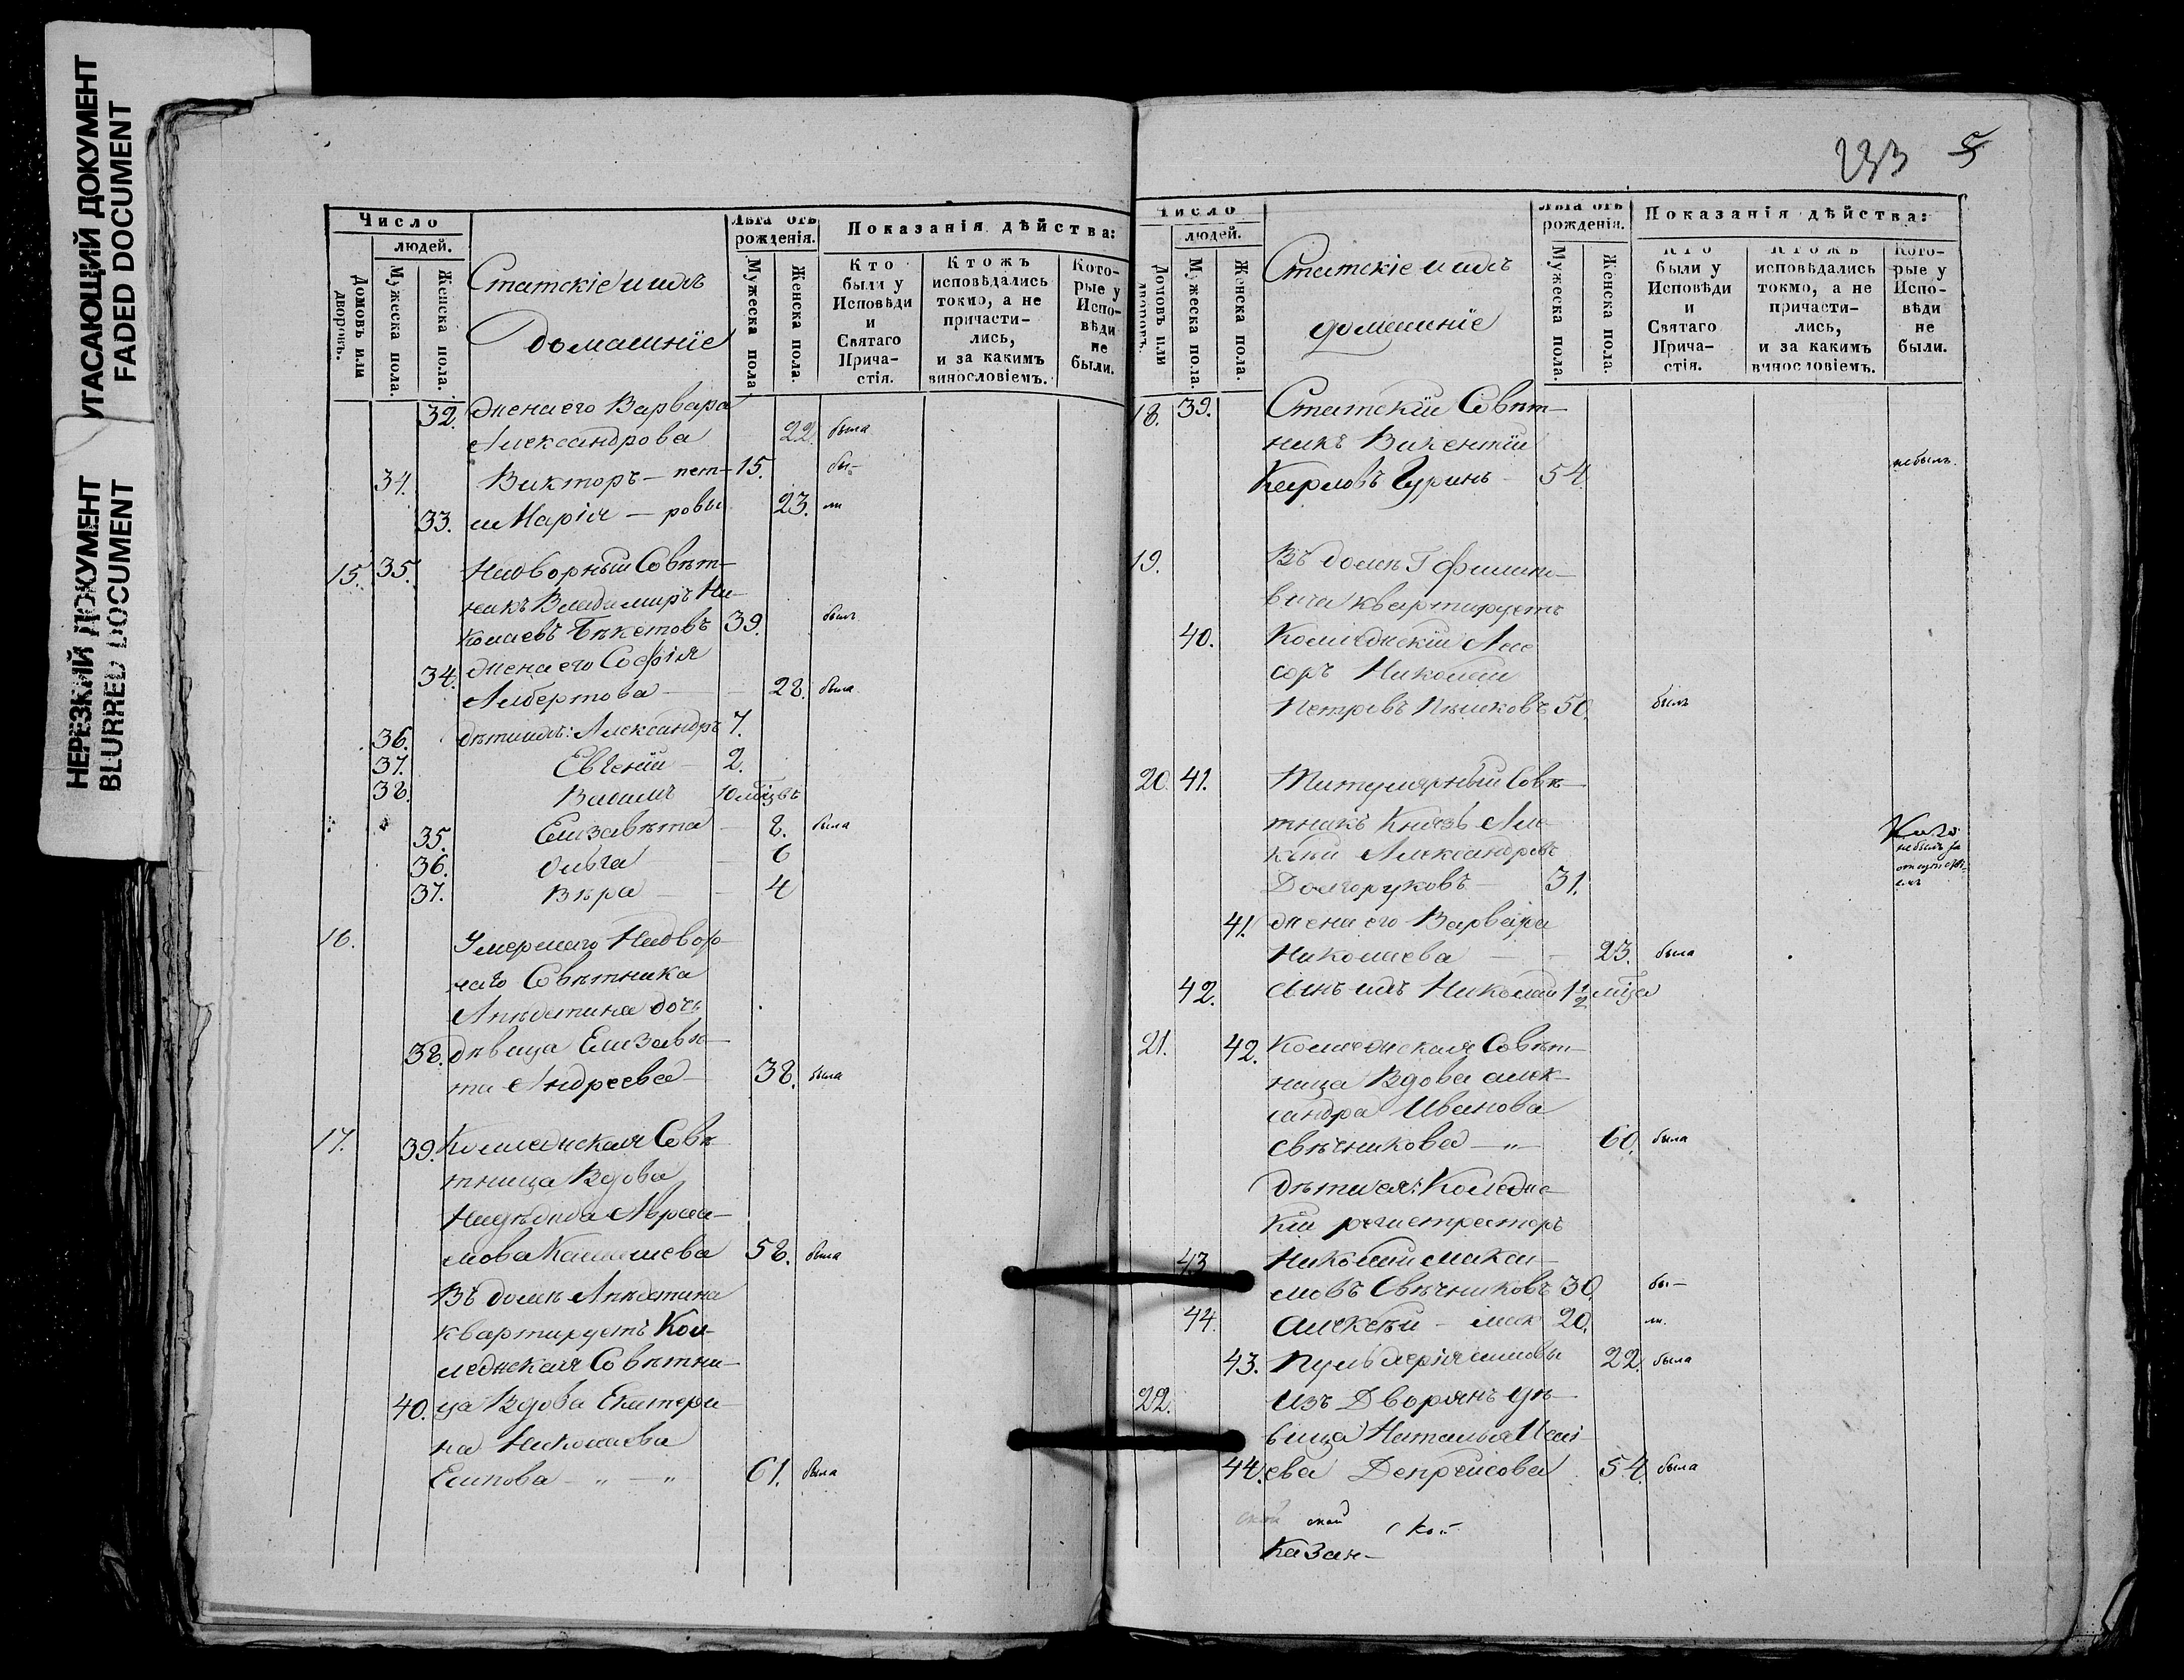 УГАСАЮЩИЙ ДОКУМЕНТ
FADED DOCUMENT
НЕРЕЗКИЙ ДОКУМЕНТ
BLURRED DOCUMENT
Число
людей.
Домовъ или дворовъ.
Мужеска пола.
Женска пола.
Статскіе и ихъ
Домашніе
Лѣта отъ рожденія.
Мужеска пола
Женска пола.
Показанія дѣйства:
Кто были у Исповѣди и Святаго Прича- стія.
Ктожъ исповѣдались токмо, а не причасти- лись, и за какимъ винословіемъ.
Кото- рые у Испо- вѣди не были.
32. жена его Варвара
Александрова 22. была
34. Викторъ — пет- 15. бы-
33. и Марія — ровы 23. ли
15. 35. Надворный Совѣт-
никъ Владимиръ Ни-
колаевъ Бекетовъ 39. былъ
34. жена его Софія
Альбертова — 28. была
36. дѣти ихъ: Александръ 7.
37. Евгеній — 2.
38. 10 мѣцъ
35. Елизавѣта — 8. была
36. Ольга — 6
37. Вѣра — 4
16. Умершаго Надвор-
наго Совѣтника
дочь
38. дѣвица Елизавѣ-
та Андреева — 38. была
17. 39. Коллежская Совѣ-
тница Вдова
Надѣжда Абраа-
мова 58. была
Въ домѣ
квартируетъ Кол-
лежская Совѣтни-
40. ца Вдова Екатери-
на Николаева
Есипова — „ — „ 61. была
233 5
Число
людей.
Домовъ или дворовъ.
Мужеска пола.
Женска пола.
Статскіе и ихъ
домашніе
Лѣта отъ рожденія.
Мужеска пола.
Женска пола.
Показанія дѣйства:
Кто были у Исповѣди и Святаго Прича- стія.
Ктожъ исповѣдались токмо, а не причасти- лись, и за какимъ винословіемъ.
Кото- рые у Испо- вѣди не были.
18. 39. Статскій Совѣт-
никъ Викентій
Карловъ Гуринъ — 54 небылъ.
19. Въ домѣ
вича квартируетъ
40. Коллежскій Асе
соръ Николай
Петровъ Пѣшковъ 50. былъ
20. 41. Титулярный Совѣ-
тникъ Князь Але-
ксѣй Александровъ
Долгоруковъ — 31. небылъ за
отсутстві-
емъ
41. жена его Варвара
Николаева — 23. была
42. сынъ ихъ Николай 1 1/2 мѣца
21. 42. Коллежская Совѣт-
ница Вдова Алек-
сандра Иванова
Свѣчникова — „ — 60. была
дѣти ея: Колежс-
кій регистраторъ
43 Николай Макси-
мовъ Свѣчниковъ 30. бы-
44. Алексѣй — мак 20. ли.
43. симовы 22. была
22. Изъ Дворянъ дѣ-
вица Наталья
44. ева Депрейсова 54. была
ской ской ко-
Казан-